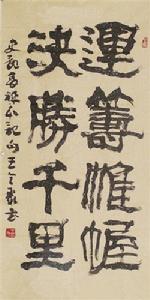 運籌帷幄
決勝千里
史記高祖本記句王